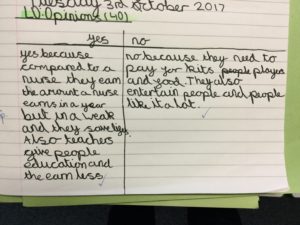 Tuesday 3rd October 2017
LO Opinions (40)
yes
no
yes because
compared to a
nurse they earn
the amount a nurse
earns in a year
but in a weak
and they save lifes.
Also teachers
give people
education and
the earn less.
no because they need to
pay for kits people players
and good. They also
entertain people and people
like it a lot.